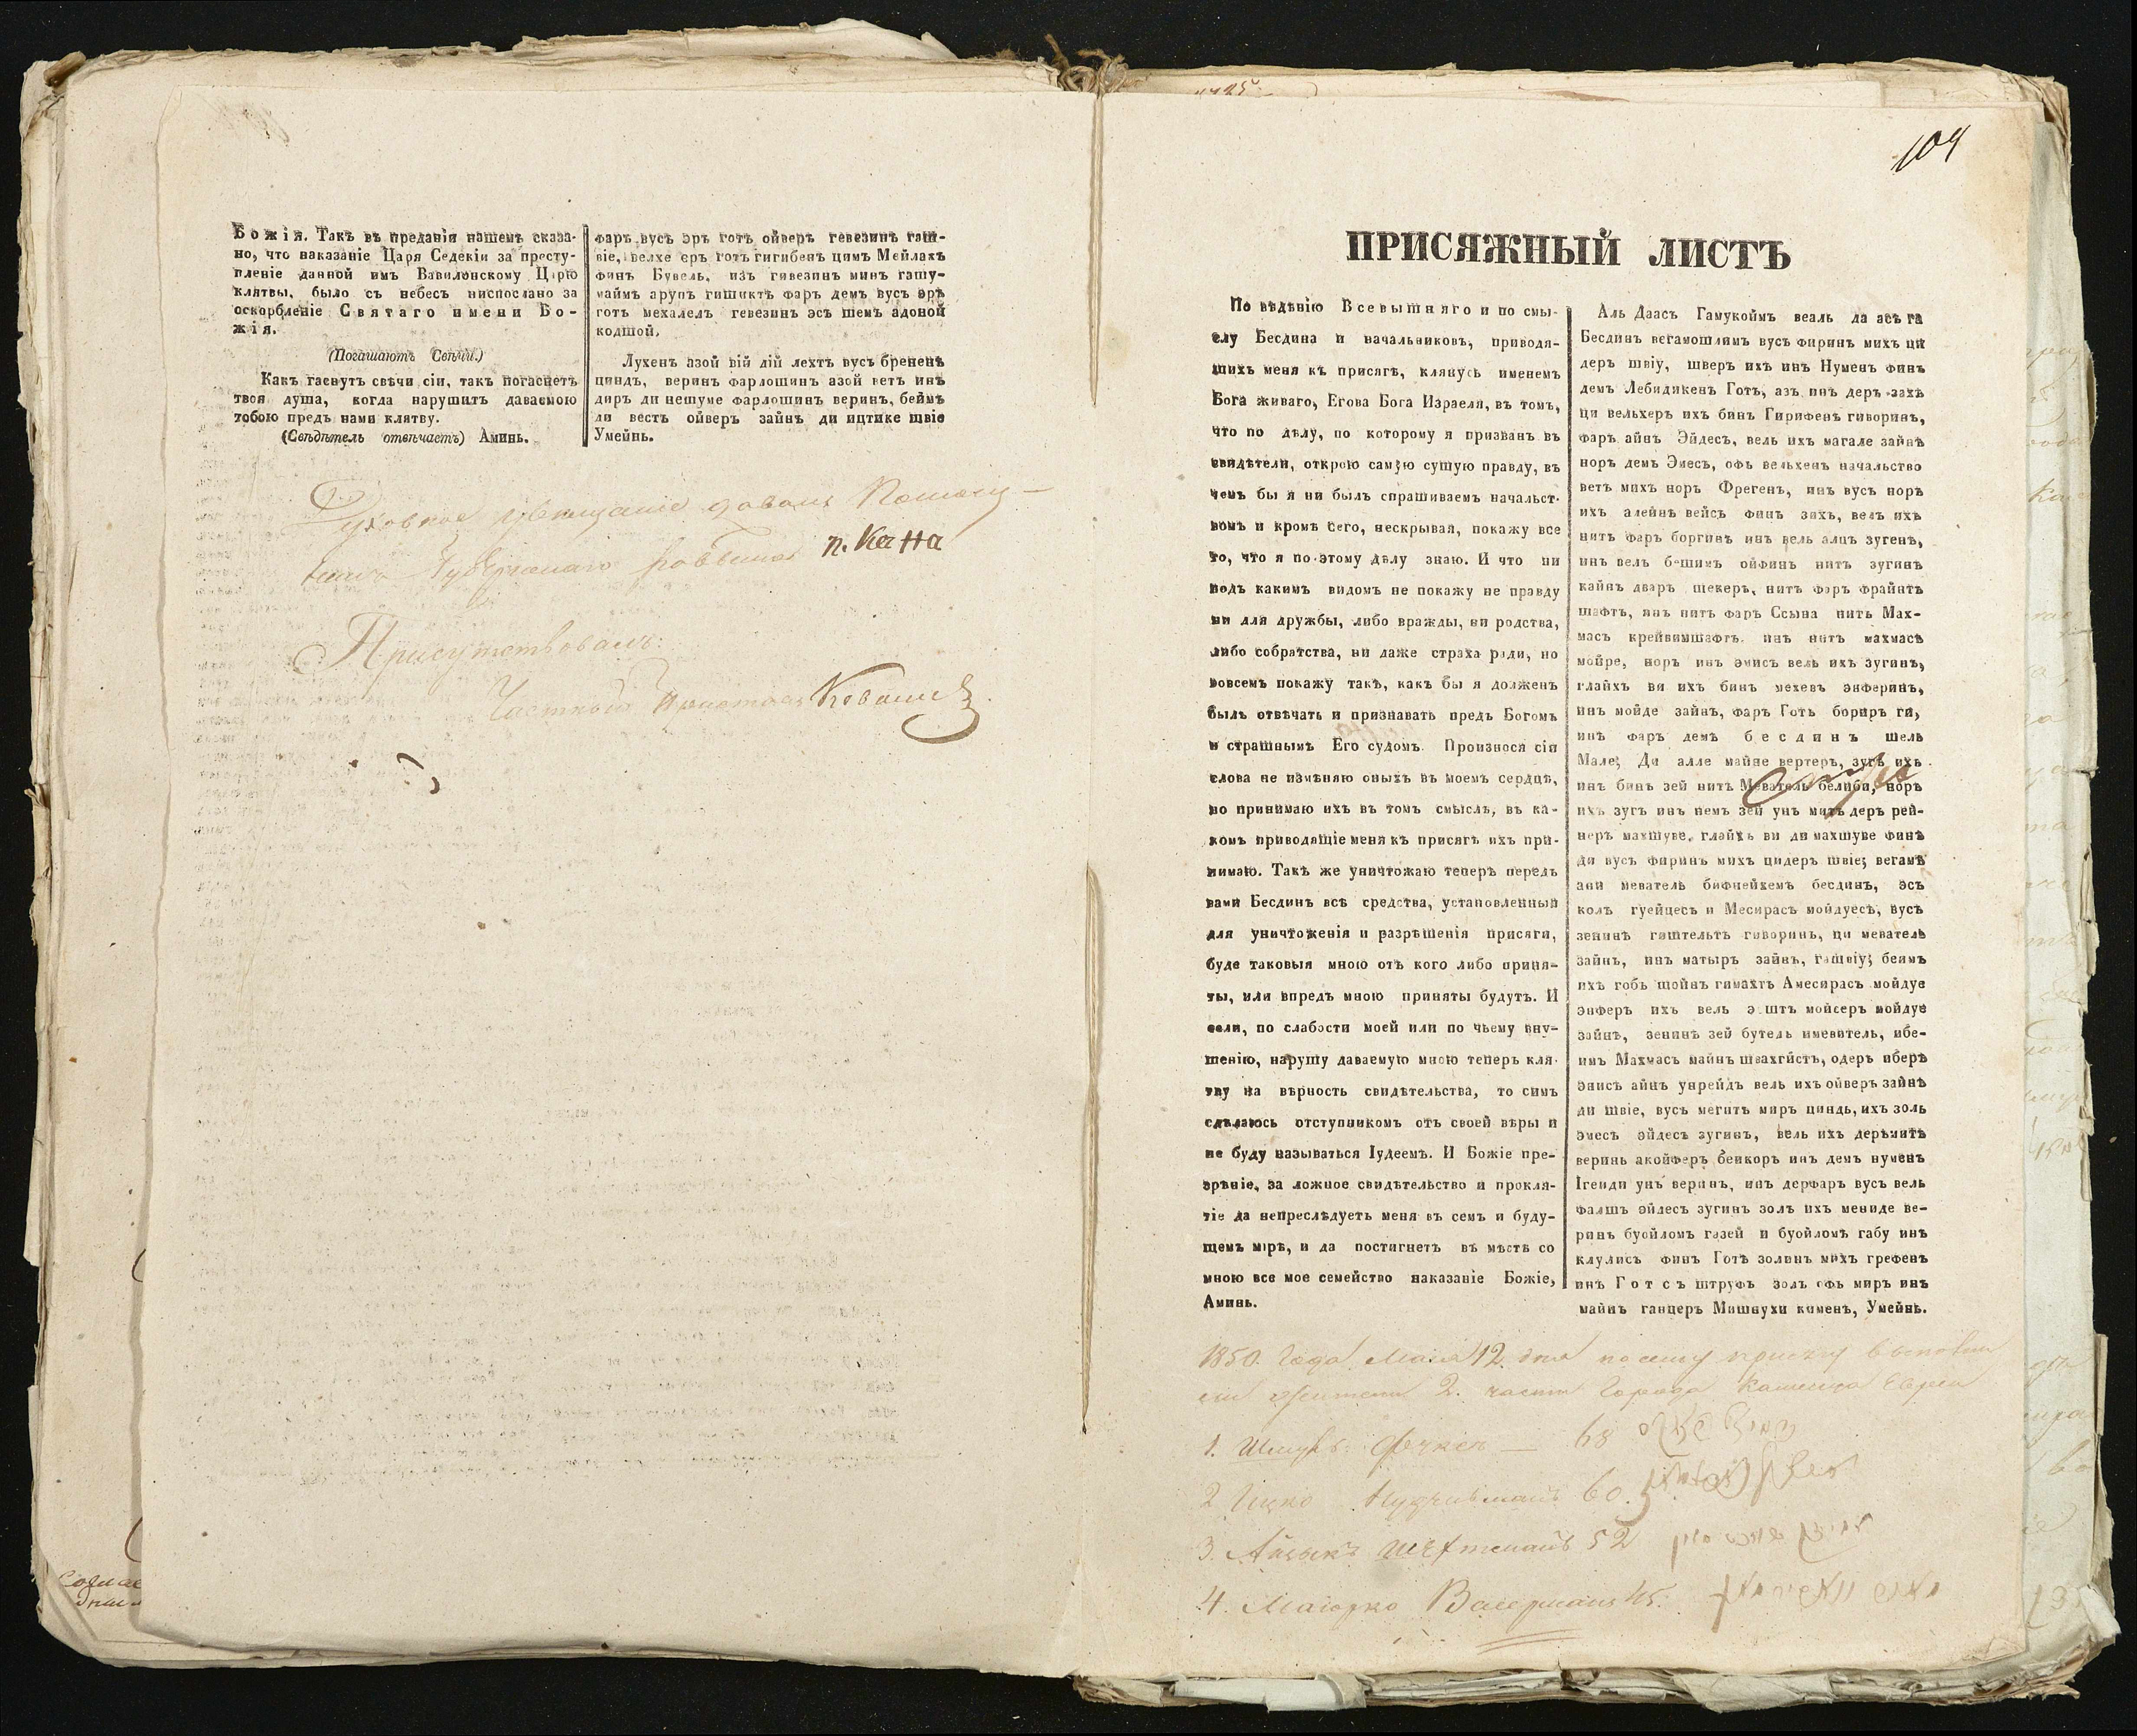 Божія. Такъ въ преданіи нашемъ сказа-
но, что наказаніе Царя Седекіи за престу-
пленіе данной имъ Вавилонскому Царю
клятвы, было съ небесъ ниспослано за
оскорбленіе Святаго имени Бо-
жія.
(Погашаютъ Свѣчи.)
Какъ гаснутъ свѣчи сіи, такъ погаснетъ
твоя душа, когда нарушитъ даваемою
тобою предъ нами клятву.
(Свѣдѣтель отвѣчаетъ) Аминь.
фаръ вусъ эръ готъ ойверъ гевезинъ гаш-
віе, велхе еръ готъ гигибенъ цимъ Мейлахъ
финъ Бувель, изъ гивезинъ минъ гашу-
маймъ арупъ гишиктъ фаръ демъ вусъ эръ
готъ мехалелъ гевезинъ эсъ шемъ адоной
кодшой.
Лухенъ азой вій дій лехтъ вусъ брененъ
циндъ, веринъ фарлошинъ азой ветъ инъ
диръ ди нешуме фарлошинъ веринъ, беймъ
ди весть ойверъ зайнъ ди ицтике швіе
Умейнь.
Духовное увѣщаніе давалъ
п. Кан
Присутствовалъ:
Частный Приставъ
104
ПРИСЯЖНЫЙ ЛИСТЪ
По вѣдѣнію Всевышняго и по смы-
слу Бесдина и начальниковъ, приводя-
щихъ меня къ присягѣ, клянусь именемъ
Бога живаго, Егова Бога Израеля, въ томъ,
что по дѣлу, по которому я призванъ въ
свидѣтели, открою самую сущую правду, въ
чемъ бы я ни былъ спрашиваемъ начальст-
вомъ и кромѣ сего, нескрывая, покажу все
то, что я по этому дѣлу знаю. И что ни
подъ какимъ видомъ не покажу не правду
ни для дружбы, либо вражды, ни родства,
либо собратства, ни даже страха ради, но
вовсемъ покажу такъ, какъ бы я долженъ
былъ отвѣчать и признавать предъ Богомъ
и страшнымъ Его судомъ. Произнося сіи
слова не измѣняю оныхъ въ моемъ сердцѣ,
но принимаю ихъ въ томъ смыслѣ, въ ка-
комъ приводящіе меня къ присягѣ ихъ при-
нимаю. Такъ же уничтожаю теперъ передъ
вами Бесдинъ всѣ средства, установленный
для уничтоженія и разрѣшенія присяги,
буде таковыя мною отъ кого либо приня-
ты, или впредъ мною приняты будутъ. И
если, по слабости моей или по чьему вну-
шенію, нарушу даваемую мною теперь кля-
тву на вѣрность свидѣтельства, то симъ
сдѣлаюсь отступникомъ отъ своей вѣры и
не буду называться Іудеемъ. И Божіе пре-
зрѣніе, за ложное свидѣтельство и прокля-
тіе да непреслѣдуетъ меня въ семъ и буду-
щемъ мірѣ, и да постигнетъ въ мѣстѣ со
мною все мое семейство наказаніе Божіе,
Аминь.
Аль Даасъ Гамукоймъ веаль да асъ га
Бесдинъ вегамошлимъ вусъ фиринъ михъ ци
деръ швіу, шверъ ихъ инъ Нуменъ финъ
демъ Лебидикенъ Готъ, азъ инъ деръ захъ
ци вельхеръ ихъ бинъ Гирифенъ гиворинъ,
фаръ айнъ Эйдесъ, вель ихъ магале зайнъ
норъ демъ Эмесъ, офъ вельхенъ начальство
ветъ михъ норъ Фрегенъ, инъ вусъ норъ
ихъ алейнъ вейсъ финъ зихъ, велъ ихъ
нитъ фаръ боргинъ инъ вель алцъ зугенъ,
инъ велъ бешимъ ойфинъ нитъ зугинъ
кайнъ дваръ шекеръ, нитъ форъ фрайнтъ
шафтъ, инъ нитъ фаръ Ссына нитъ Мах-
масъ крейвимшафтъ инъ нитъ махмасъ
мойре, норъ инъ эмисъ вель ихъ зугинъ,
глайхъ ви ихъ бинъ мехевъ энферинъ,
инъ мойде зайнъ, фаръ Готъ бориръ ги,
инъ фаръ демъ бесдинъ шель
Мале; Ди алле майне вертеръ, зугъ ихъ
инъ бинъ зей нитъ Меватель белиби, норъ
ихъ зугъ инъ немъ зей унъ митъ деръ рей-
неръ махшуве, глайхъ ви ди махшуве финъ
ди вусъ фиринъ михъ цидеръ швіе; вегамъ
ани меватель бифнейхемъ бесдинъ, эсъ
колъ гуейцесъ и Месирасъ мойдуесъ, вусъ
зенинъ гештельтъ гиворинъ, ци меватель
зайнъ, инъ матыръ зайнъ, гашвіу; беимъ
ихъ гобъ шойнъ гимахтъ Амесирасъ мойдуе
энферъ ихъ вель эштъ мойсеръ мойдуе
зойнъ, зенинъ зей бутель имевитель, ибе-
имъ Махмасъ майнъ швахгистъ, одеръ иберъ
энисъ айнъ унрейдъ вель ихъ ойверъ зайнъ
ди швіе, вусъ мегитъ миръ циндъ, ихъ золь
эмесъ эйдесъ зугинъ, вель ихъ дерьмитъ
веринь акойферъ беикоръ инъ демъ нуменъ
Ігеиди унъ веринъ, инъ дерфаръ вусъ вель
фалшъ эйдесъ зугинъ золъ ихъ мениде ве-
ринъ буойломъ газей и буойломъ габу инъ
клулисъ финъ Готъ золинъ михъ грефенъ
инъ Готсъ штруфъ золъ офъ миръ инъ
майнъ ганцеръ Мишнухи кименъ, Умейнь.
1850. Года Маія 12 дня по сему
2. части Города Каменца Евреи
1. Шмуль — 68
2. Ицко 60.
3. Айзыкъ 52
4. 45.